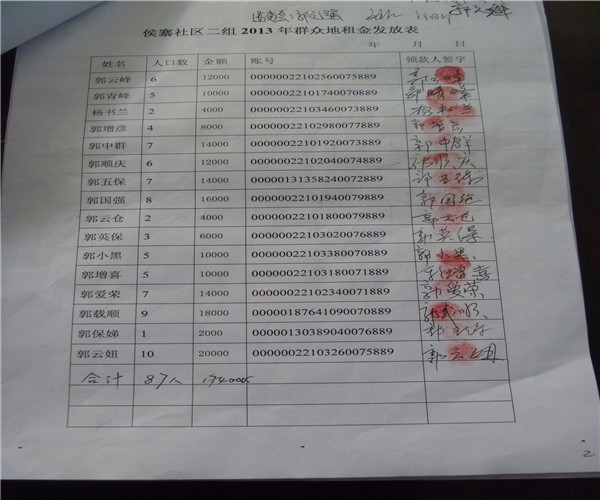 侯寨社区二组2013年群众地租金发放表
年 月 日
姓名 人口数 金额 账号 领款人签字
郭云峰 6 12000 00000022102560075889 郭云峰
郭青峰 5 10000 00000022101740070889 郭晴峰
杨书兰 2 4000 00000022103460073889 杨书兰
郭增彦 4 8000 00000022102980077889 郭增彦
郭中群 7 14000 00000022101920073889 郭中群
郭顺庆 6 12000 00000022102040074889
郭五保 7 14000 00000131358240072889 郭五保
郭国强 8 16000 00000022101940079889 郭国强
郭云仓 2 4000 00000022101800079889 郭云仓
郭英保 3 6000 00000022103020076889 郭英保
郭小黑 5 10000 00000022103380070889 郭小黑
郭增喜 5 10000 00000022103180071889 郭增喜
郭爱荣 7 14000 00000022102340071889 郭爱荣
郭载顺 9 18000 00000187641090070889
郭保娣 1 2000 00000130389040076889
郭云妞 10 20000 00000022103260075889 郭云妞
合计 87人 174000
2